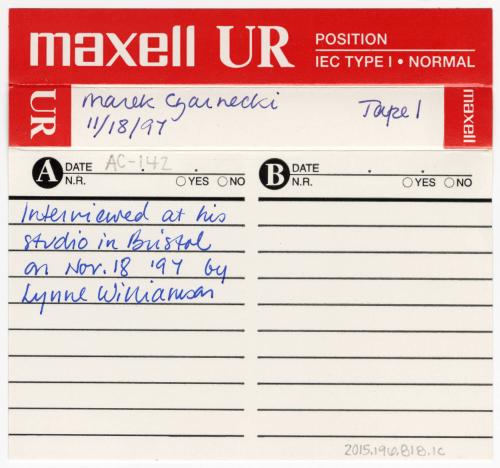 maxell UR POSITION
IEC TYPE I • NORMAL
UR Marek Czarnecki Tape 1 maxell
11/18/97
A DATE AC-142 . .
N.R. ○YES ○NO
B DATE . .
N.R. ○YES ○NO
Interviewed at his
studio in Bristol
on Nov. 18 '97 by
Lynne Williamson
2015.196.818.1c